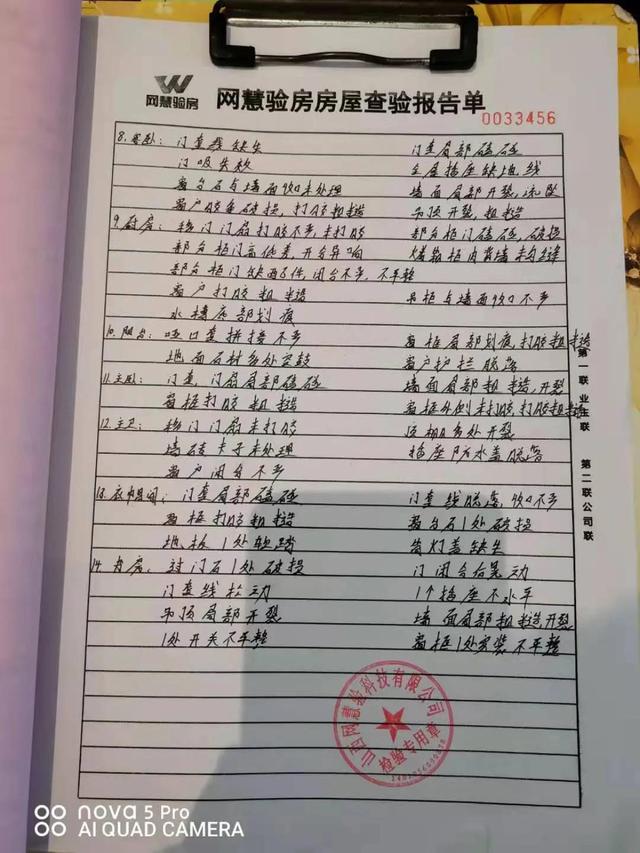 网慧验房
网慧验房房屋查验报告单
0033456
8.客卧：门套线缺失 门套局部磕碰
门吸失效 全屋插座缺地线
窗台石与墙面收口未处理 墙面局部开裂，流坠
窗户胶条破损，打胶粗糙 吊顶开裂，粗糙
9.厨房：移门门扇打胶不齐，未打胶 部分柜门磕碰，破损
部分柜门高低差，开合异响 烟气柜内背墙未勾缝
部分柜门缺配件，闭合不齐，不平整
窗户打胶粗糙 吊柜与墙面收口不齐
水槽底部划痕
10.阳台：哑口套拼接不齐 窗框局部划痕，打胶粗糙
地面石材多处空鼓 窗户护拦脱落
11.主卧：门套，门扇局部磕碰 墙面局部粗糙，开裂
窗框打胶粗糙 窗框外侧未打胶，打胶粗糙
12.主卫：移门门扇未打胶 顶棚多处开裂
墙砖卡子未处理 插座防水盖脱落
窗户闭合不齐
13.衣帽间：门套局部磕碰 门套线脱落，收口不齐
窗框打胶粗糙 窗台石1处破损
地板1处软踏 筒灯盖缺失
14.书房：过门石1处破损 门闭合后晃动
门套线松动 1个插座不水平
吊顶局部开裂 墙面局部粗糙，开裂
1处开关不平整 窗框1处安装不平整
第一联业主联
第二联公司联
山西网慧验科技有限公司
检验专用章
nova 5 Pro
AI QUAD CAMERA